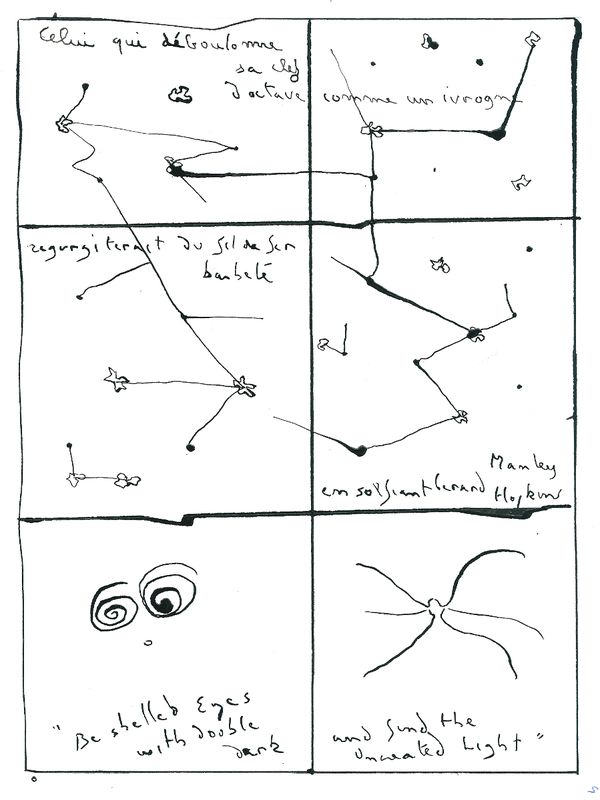 Celui qui déboulonne
sa clef
d'octave comme un ivrogne
regurgiterait du fil de fer
barbelé
en solfiant Gerard Manley
Hopkins
"Be shelled Eyes
with double
dark
and find the
Uncreated Light"